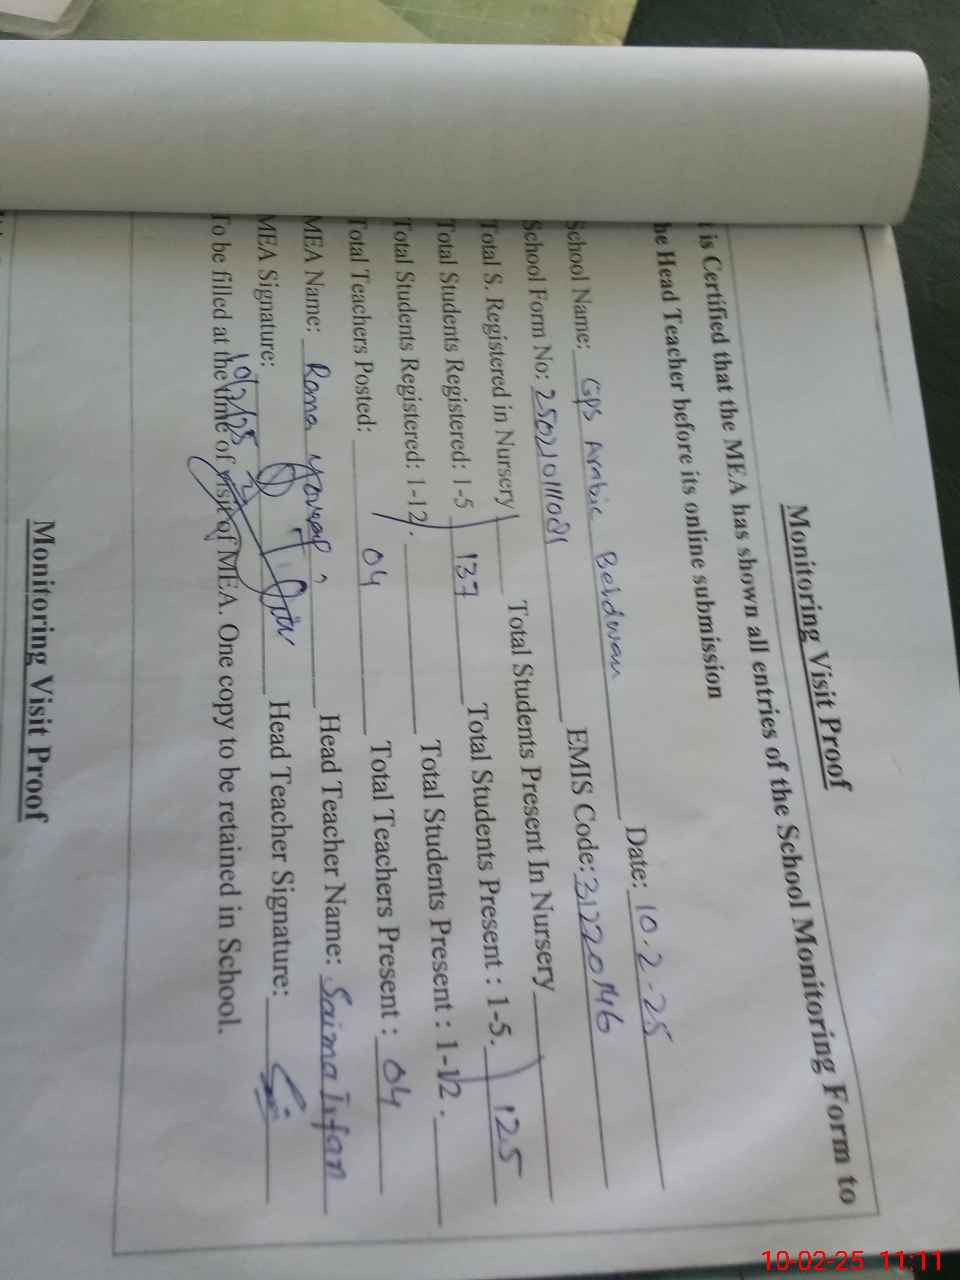 Monitoring Visit Proof
t is Certified that the MEA has shown all entries of the School Monitoring Form to
he Head Teacher before its online submission
School Name: GPS Arabic Date: 10.2.25
School Form No: EMIS Code: 31220146
Total S. Registered in Nursery Total Students Present In Nursery
Total Students Registered: 1-5 137 Total Students Present : 1-5. 125
Total Students Registered: 1-12. Total Students Present : 1-12.
Total Teachers Posted: 04 Total Teachers Present : 04
MEA Name: Roma Head Teacher Name: Saima Irfan
MEA Signature: Head Teacher Signature:
10/2/25
To be filled at the time of visit of MEA. One copy to be retained in School.
Monitoring Visit Proof
10-02-25 11:11